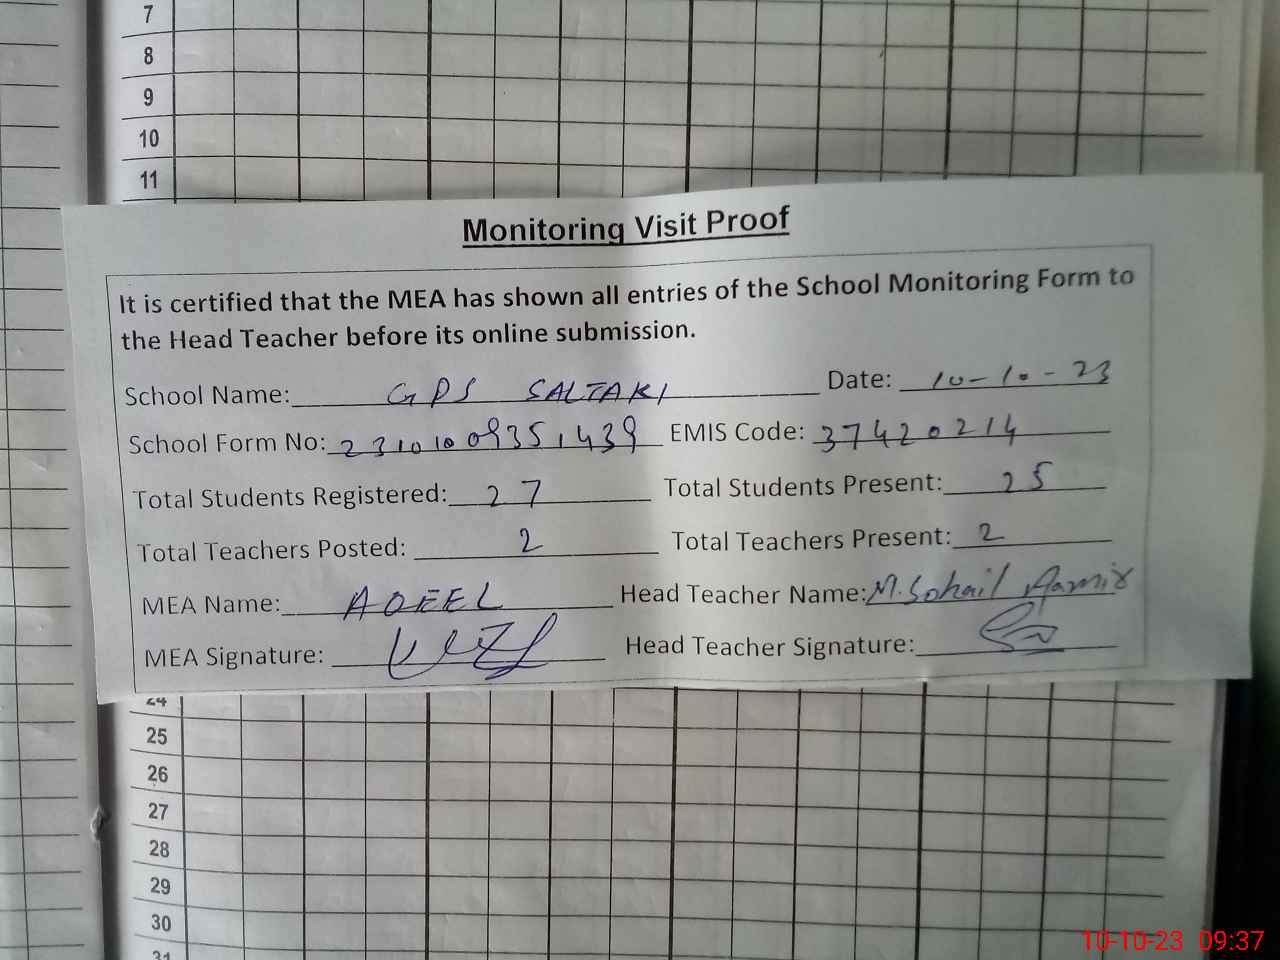 7
8
9
10
11
Monitoring Visit Proof
It is certified that the MEA has shown all entries of the School Monitoring Form to
the Head Teacher before its online submission.
School Name: GPS SALTAKI Date: 10-10-23
School Form No: 23101009351439 EMIS Code: 37420214
Total Students Registered: 27 Total Students Present: 25
Total Teachers Posted: 2 Total Teachers Present: 2
MEA Name: AQEEL Head Teacher Name: M. Sohail Aamir
MEA Signature: Head Teacher Signature:
24
25
26
27
28
29
30
31
10-10-23 09:37